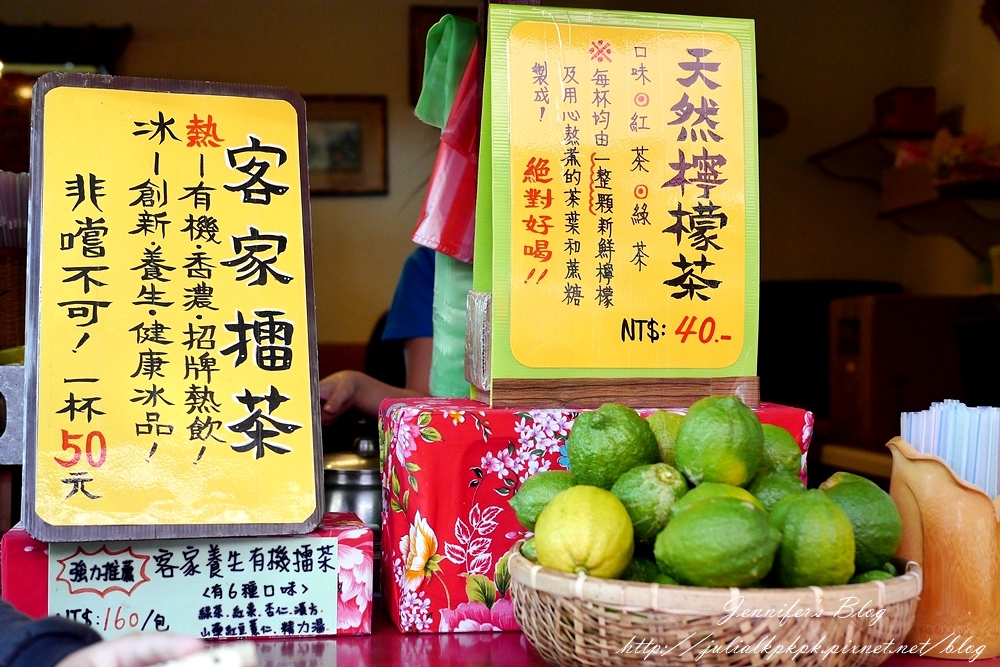 客家擂茶
熱－有機·香濃·招牌熱飲！
冰－創新·養生·健康冰品！
非嚐不可！一杯50元
強力推薦
客家養生有機擂茶
<有6種口味>
綠茶.紅棗.杏仁.漢方.
山藥紅豆薏仁.精力湯
NT$:160/包
天然檸檬茶
口味⊙紅茶⊙綠茶
※每杯均由一整顆新鮮檸檬
及用心熬煮的茶葉和蔗糖
製成！
絕對好喝!!
NT$: 40.-
Jennifer's Blog
http://julialkpkpk.pixnet.net/blog